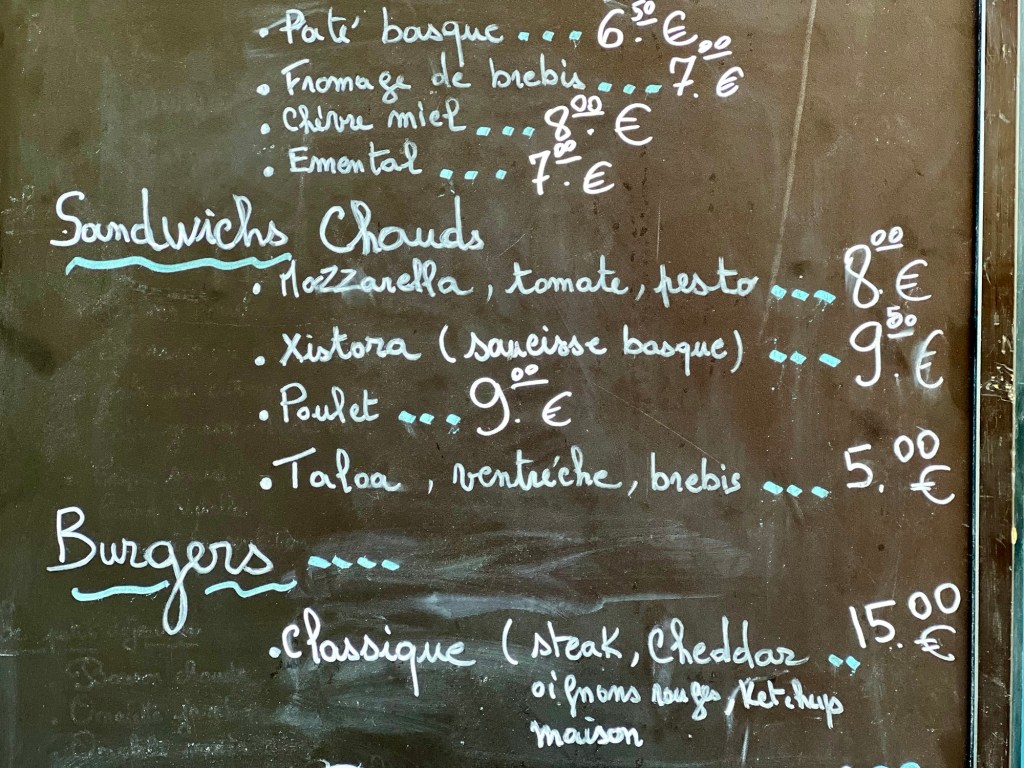 . Paté basque ... 6.50 €
. Fromage de brebis ... 7.00 €
. Chèvre miel ... 8.00 €
. Emental ... 7.00 €
Sandwichs Chauds
. Mozzarella, tomate, pesto ... 8.00 €
. Xistora (saucisse basque) ... 9.50 €
. Poulet ... 9.00 €
. Taloa, ventréche, brebis ... 5.00 €
Burgers ....
. Classique (steak, Cheddar .. 15.00 €
oignons rouges, Ketchup
maison